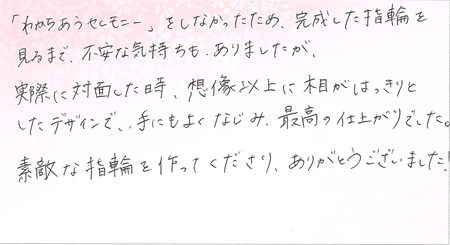 「わかちあうセレモニー」をしなかったため、完成した指輪を
見るまで、不安な気持ちも ありましたが、
実際に対面した時、想像以上に木目がはっきりと
したデザインで、手にもよくなじみ、最高の仕上がりでした。
素敵な指輪を作ってくださり、ありがとうございました!